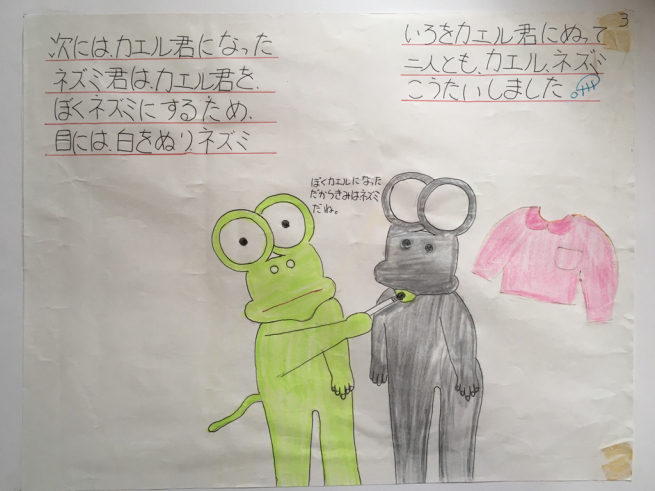 次には、カエル君になった
ネズミ君は、カエル君を、
ぼくネズミにするため、
目には、白をぬり、ネズミ
いろをカエル君にぬって
二人とも、カエル、ネズミ
こうたいしました
ぼくカエルになった
だからきみはネズミ
だね。
3